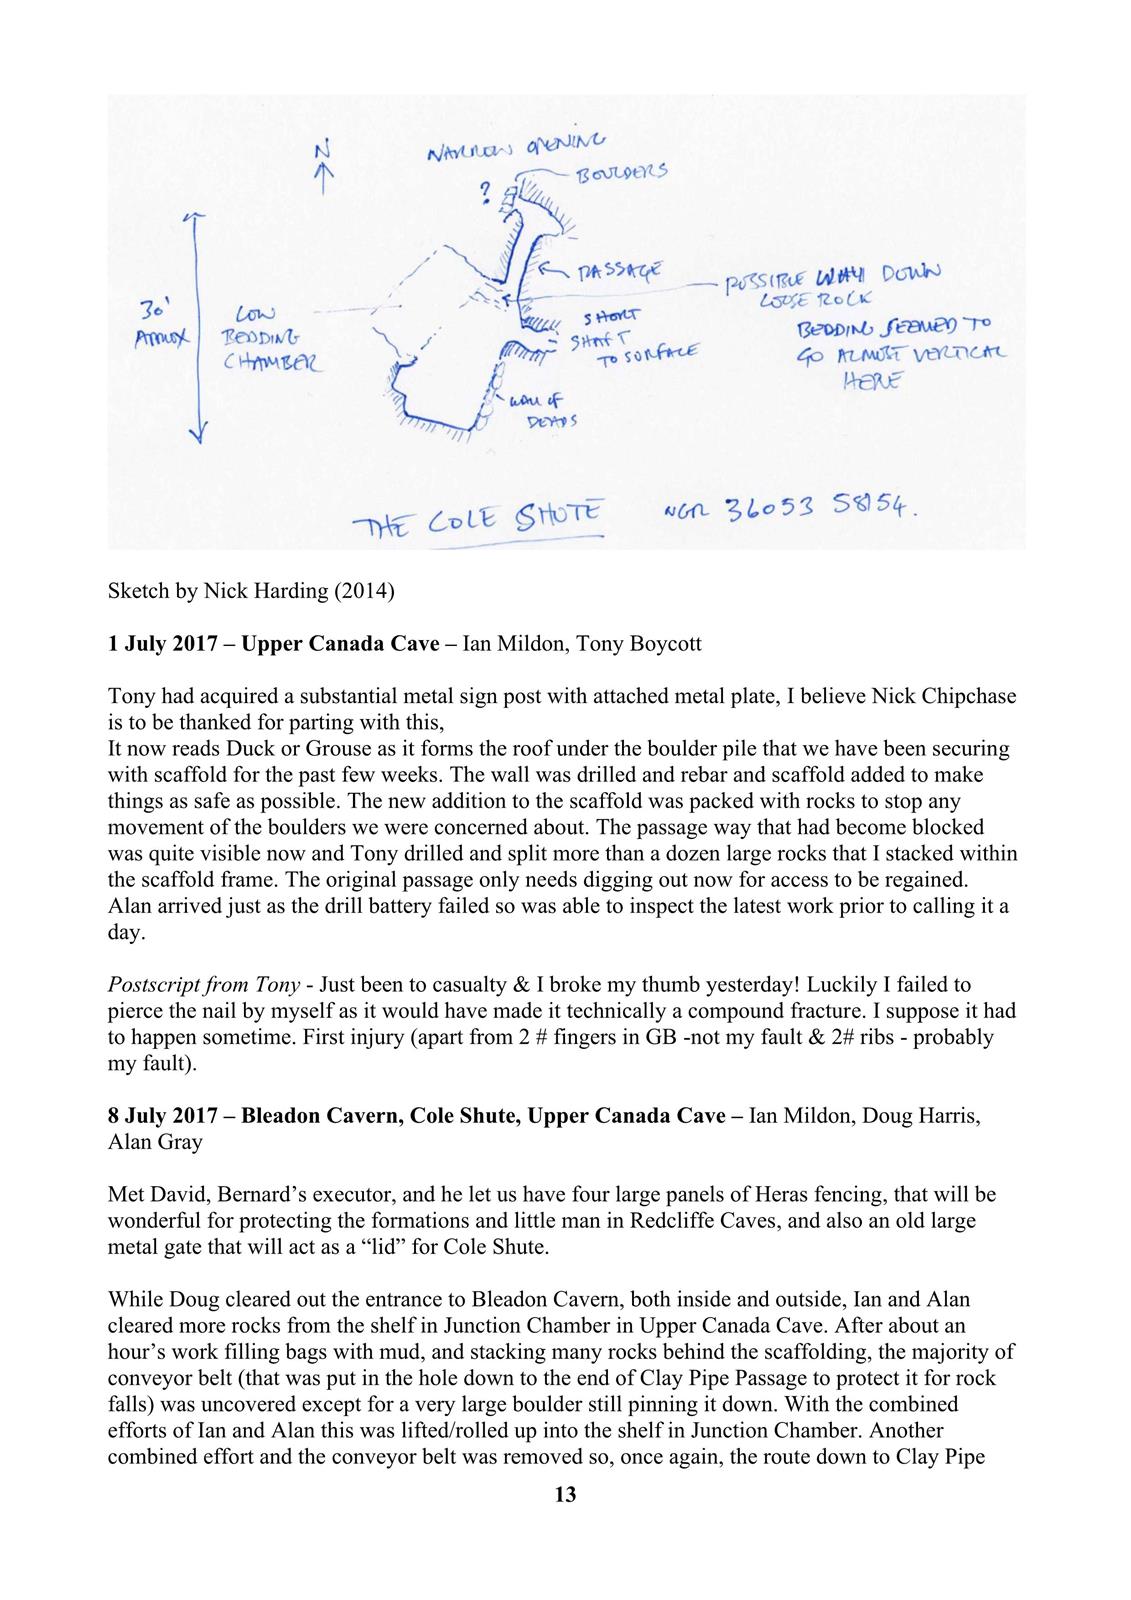 N
NARROW OPENING
BOULDERS
?
PASSAGE
POSSIBLE WAY DOWN
LOOSE ROCK
BEDDING SEEMED TO
GO ALMOST VERTICAL
HERE
30'
APPROX
LOW
BEDDING
CHAMBER
SHORT
SHAFT
TO SURFACE
WALL OF
DEADS
THE COLE SHUTE NGR 36053 58154.
Sketch by Nick Harding (2014)
1 July 2017 – Upper Canada Cave – Ian Mildon, Tony Boycott
Tony had acquired a substantial metal sign post with attached metal plate, I believe Nick Chipchase
is to be thanked for parting with this,
It now reads Duck or Grouse as it forms the roof under the boulder pile that we have been securing
with scaffold for the past few weeks. The wall was drilled and rebar and scaffold added to make
things as safe as possible. The new addition to the scaffold was packed with rocks to stop any
movement of the boulders we were concerned about. The passage way that had become blocked
was quite visible now and Tony drilled and split more than a dozen large rocks that I stacked within
the scaffold frame. The original passage only needs digging out now for access to be regained.
Alan arrived just as the drill battery failed so was able to inspect the latest work prior to calling it a
day.
Postscript from Tony - Just been to casualty & I broke my thumb yesterday! Luckily I failed to
pierce the nail by myself as it would have made it technically a compound fracture. I suppose it had
to happen sometime. First injury (apart from 2 # fingers in GB -not my fault & 2# ribs - probably
my fault).
8 July 2017 – Bleadon Cavern, Cole Shute, Upper Canada Cave – Ian Mildon, Doug Harris,
Alan Gray
Met David, Bernard’s executor, and he let us have four large panels of Heras fencing, that will be
wonderful for protecting the formations and little man in Redcliffe Caves, and also an old large
metal gate that will act as a “lid” for Cole Shute.
While Doug cleared out the entrance to Bleadon Cavern, both inside and outside, Ian and Alan
cleared more rocks from the shelf in Junction Chamber in Upper Canada Cave. After about an
hour’s work filling bags with mud, and stacking many rocks behind the scaffolding, the majority of
conveyor belt (that was put in the hole down to the end of Clay Pipe Passage to protect it for rock
falls) was uncovered except for a very large boulder still pinning it down. With the combined
efforts of Ian and Alan this was lifted/rolled up into the shelf in Junction Chamber. Another
combined effort and the conveyor belt was removed so, once again, the route down to Clay Pipe
13